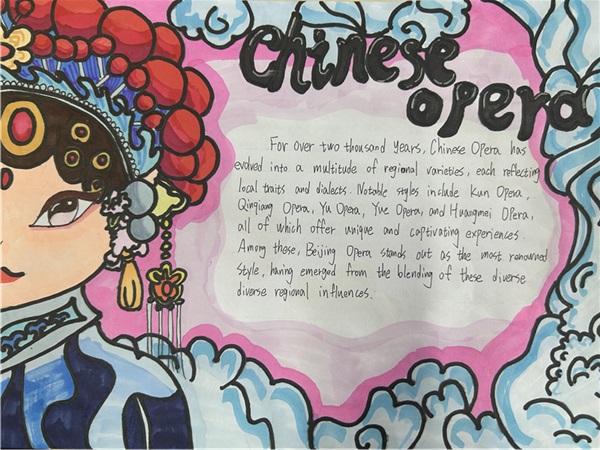 Chinese
opera
For over two thousand years, Chinese Opera has
evolved into a multitude of regional varieties, each reflecting
local traits and dialects. Notable styles include Kun Opera,
Qinqiang Opera, Yu Opera, Yue Opera, and Huangmei Opera,
all of which offer unique and captivating experiences.
Among these, Beijing Opera stands out as the most renowned
style, having emerged from the blending of these diverse
diverse regional influences.